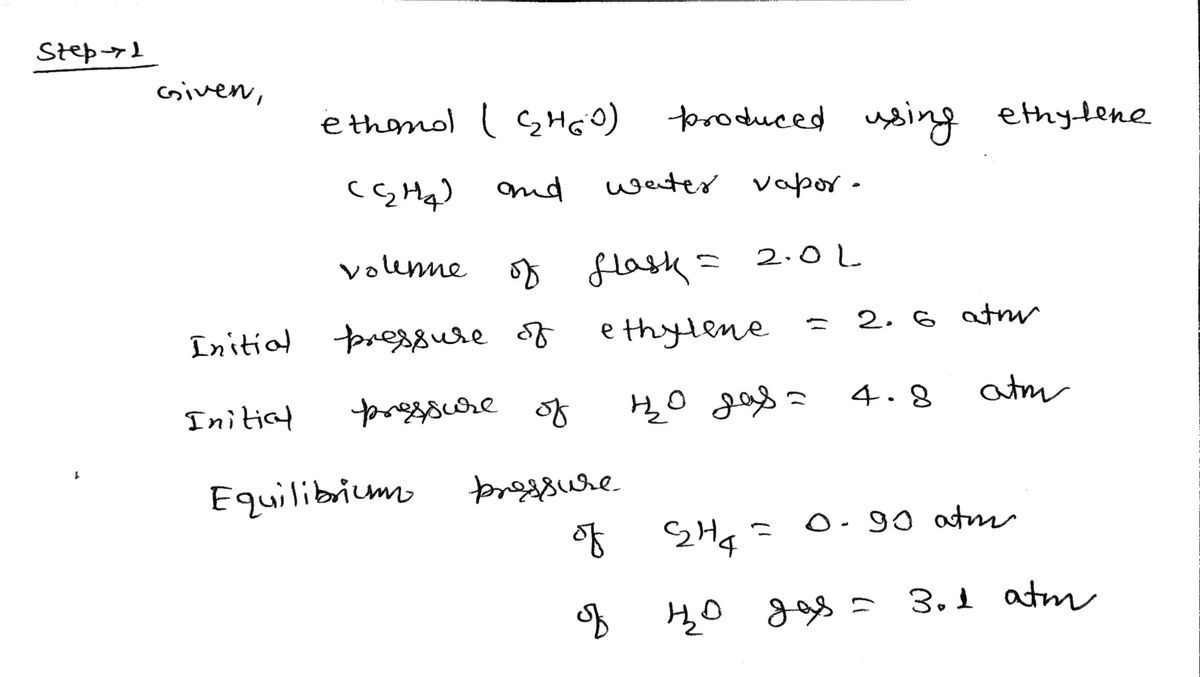 Step→1
Given,
ethanol ( C₂H₆O) produced using ethylene
(C₂H₄) and water vapor.
volume of flask = 2.0 L
Initial pressure of ethylene = 2.6 atm
Initial pressure of H₂O gas = 4.8 atm
Equilibrium pressure
of C₂H₄ = 0.90 atm
of H₂O gas = 3.1 atm